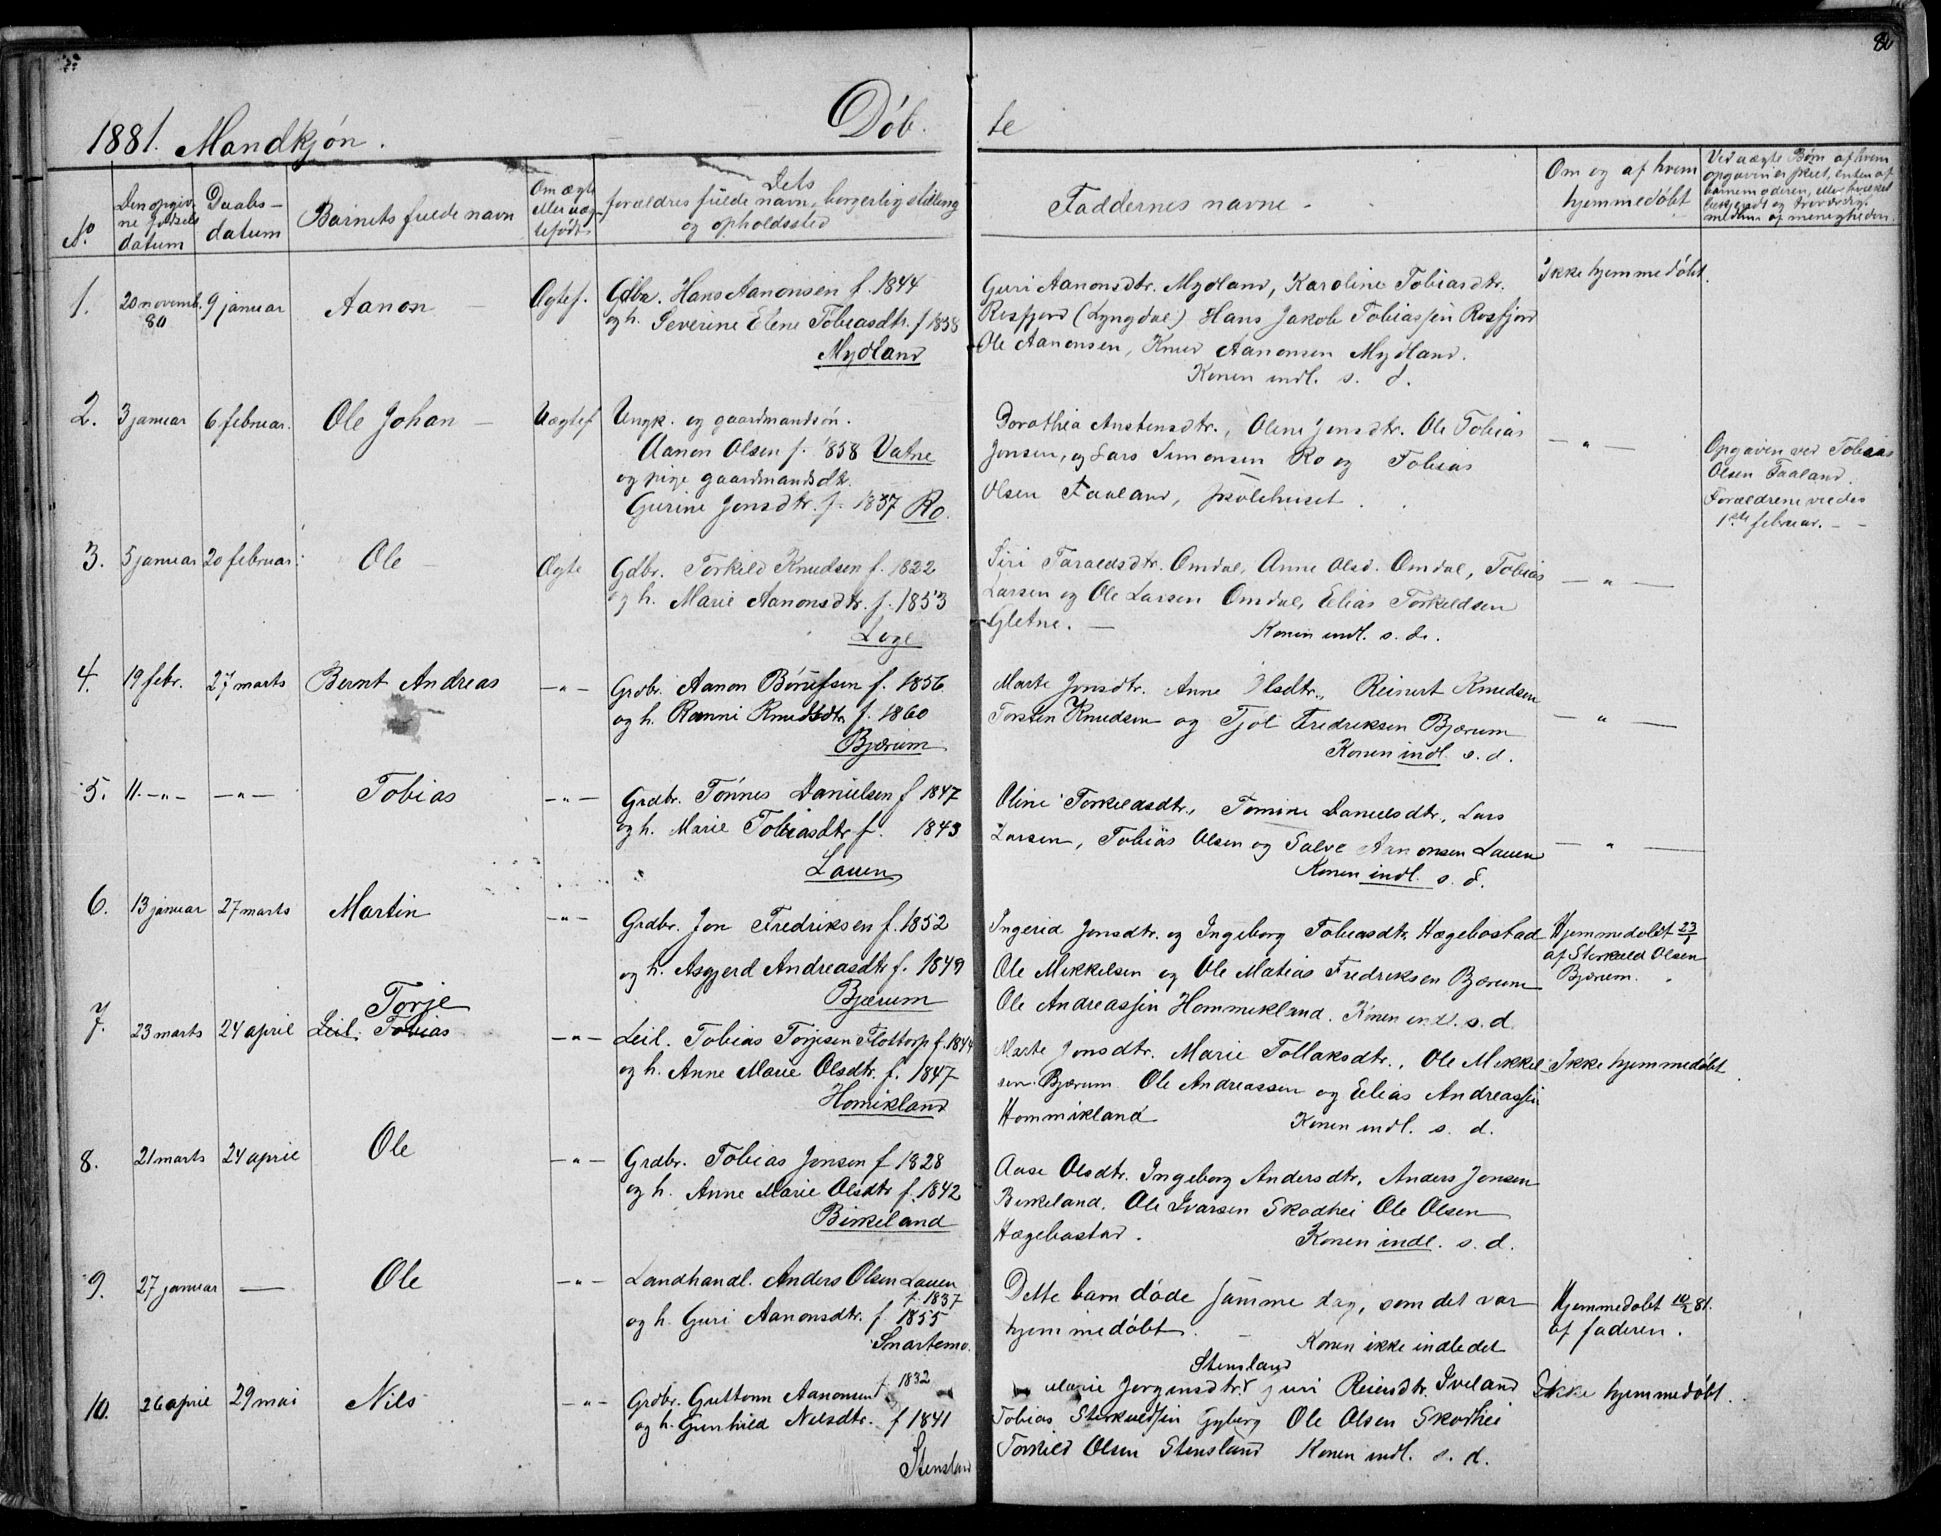 80
1881. Mandkjøn. Døb- te
No.
Den opgiv-
ne Fødsels
datum
Daabs-
datum
Barnets fulde navn
Om ægte
eller uæg-
tefødt
Dets
forældres fulde navn, borgerlig stilling
og opholdssted
Faddernes navne.
Om og af hvem
hjemmedøbt
Ved uægte Børn af hvem
opgaven er skeet, enten af
barnemoderen, eller hvilket
bekjendt og troværdigt
medlem af menigheden.
1. 20 novemb. 80 9 januar Aanon Ægtef.
Gdbr. Hans Aanonsen f. 1844
og h. Severine Elene Tobiasdtr. f 1858
Mydland
Guri Aanonsdtr. Mydland, Karoline Tobiasdtr.
Rosfjord (Lyngdal) Hans Jakob Tobiassen Rosfjord
Ole Aanonsen, Knud Aanonsen Mydland.
Konen indl. s. d.
Ikke hjemmedøbt.
2. 3 januar 6 februar. Ole Johan Uægtef
Ungk. og gaardmandsøn.
Aanon Olsen f. 1858 Vatne
og pige gaardmandsdtr.
Gurine Jonsdtr. f. 1837 Ro.
Dorothea Anstensdtr., Oline Jonsdtr. Ole Tobias
Jonsen, og Lars Simonsen Ro og Tobias
Olsen Faaland, skolehuset.
— " —
Opgaven ved Tobias
Olsen Faaland.
Forældrene viedes
1ste februar. -
3. 5 januar 20 februar. Ole Ægte
Gdbr. Torkild Knudsen f. 1822
og h. Marie Aanonsdtr. f. 1853
Loge
Siri Taraldsdtr. Omdal, Anne Olsd. Omdal, Tobias
Larsen og Ole Larsen Omdal, Elias Torkildsen
Gletne. —
Konen indl. s. d.
— " —
4. 19 febr. 27 marts Bernt Andreas — " —
Grdbr. Aanon Børufsen f. 1856
og h. Ranni Knudsdtr f. 1860
Bjærum
Marte Jonsdtr. Anne Olsdtr., Reinert Knudsen
Torsten Knudsen og Tjøl Fredriksen Bjærum
Konen indl. s. d.
— " —
5. 11. — " — — " — Tobias — " —
Grdbr. Tønnes Danielsen f 1847
og h. Marie Tobiasdtr f. 1843
Lauen
Oline Torkildsdtr., Tomine Danielsdtr, Lars
Larsen, Tobias Olsen og Salve Aanonsen Lauen
Konen indl. s. d.
— " —
6. 13 januar 27 marts Martin — " —
Grdbr. Jon Fredriksen f. 1852
og h. Asgjerd Andreasdtr f. 1849
Bjærum
Ingerid Jonsdtr. og Ingeborg Tobiasdtr. Hægebostad
Ole Mekkelsen og Ole Matias Fredriksen Bjærum
Ole Andreassen Hommekland. Konen indl. s. d.
Hjemmedøbt 23/1
af Sterkuld Olsen
Bjærum.
7. 23 marts 24 april Torje
Leil. Tobias — " —
Leil. Tobias Torjesen Flottorp f. 1844
og h. Anne Marie Olsdtr. f. 1847
Homikland
Marte Jonsdtr. Marie Tollaksdtr., Ole Mekkel-
sen Bjærum Ole Andreassen og Elias Andreassen
Hommikland
Konen indl. s. d.
Ikke hjemmedøbt
8. 21 marts 24 april Ole — " —
Grdbr. Tobias Jonsen f 1828
og h. Anne Marie Olsdtr f. 1842
Birkeland
Aase Olsdtr. Ingeborg Andersdtr, Anders Jonsen
Birkeland, Ole Ivarsen Skodhei Ole Olsen
Hægebostad.
Konen indl. s. d.
9. 27 januar — Ole — " —
Landhandl. Anders Olsen Lauen
f. 1837
og h. Guri Aanonsdtr. f 1855
Snartemo.
Dette barn døde samme dag, som det var
hjemmedøbt.
Konen ikke indledet
Hjemmedøbt 10/2 81.
af faderen.
10. 26 april 29 mai Nils — " —
Grdbr. Guttorm Aanonsen f. 1832
og h. Gunhild Nilsdtr. f 1841
Stensland
Stensland
Marie Jørginsdtr. Guri Reiersdtr. Iveland
Tobias Sterkuldsen Gyberg Ole Olsen Skodhei
Torkild Olsen Stensland Konen indl. s. d.
Ikke hjemmedøbt.